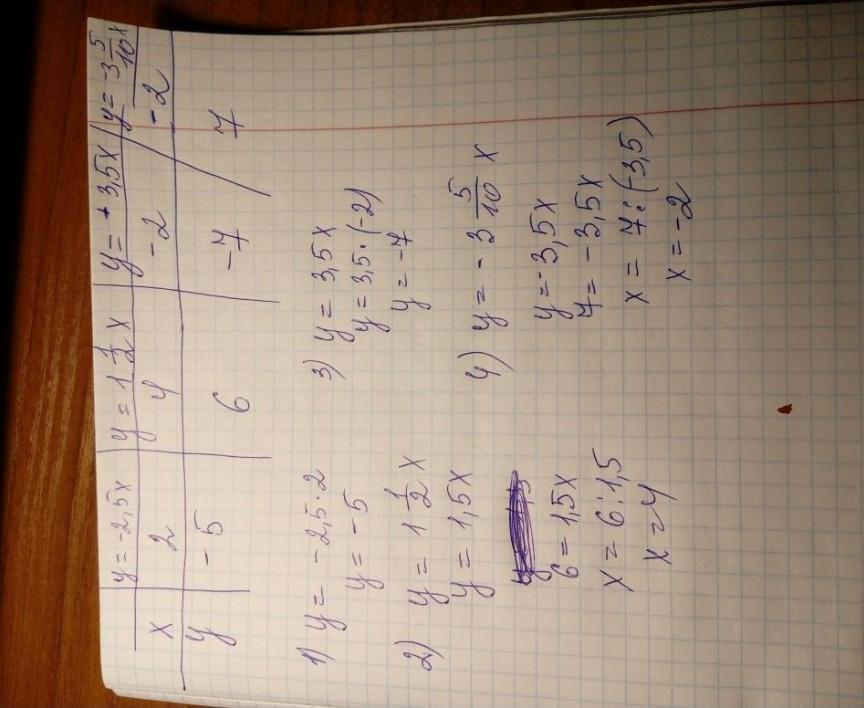 y = -2,5x y = 1 1/2 x y = + 3,5x y = -3 5/10 x
x 2 4 -2 -2
y -5 6 -7 7
1) y = -2,5·2
y = -5
2) y = 1 1/2 x
y = 1,5x
6 = 1,5x
x = 6:1,5
x = 4
3) y = 3,5x
y = 3,5·(-2)
y = -7
4) y = -3 5/10 x
y = -3,5x
7 = -3,5x
x = 7:(-3,5)
x = -2